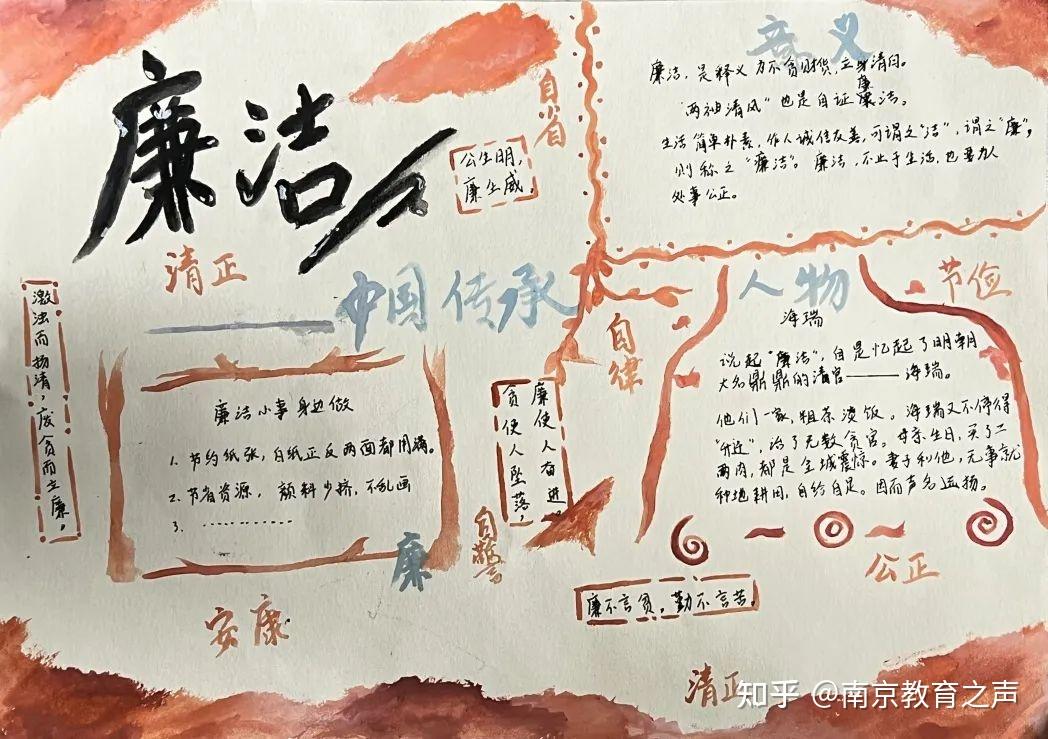 廉洁
自省
公生明，
廉生威。
清正
中国传承
激浊而扬清，废贪而立廉，
廉洁小事身边做
1. 节约纸张，白纸正反两面都用满。
2. 节省资源，颜料少挤，不乱画
3. …………
廉
安康
意义
廉洁，是释义为不贪财货，立身清白。
"两袖清风"也是自证廉洁。
生活简单朴素，作人诚信友善，可谓之"洁"，谓之"廉"，
则称之"廉洁"。廉洁，不止于生活，也要为人
处事公正。
自律
廉使人奋进。
贪使人坠落，
自警
人物
节俭
海瑞
说起"廉洁"，自是忆起了明朝
大名鼎鼎的清官——海瑞。
他们一家，粗茶淡饭。海瑞又不停得
"升迁"，治了无数贪官。母亲生日，买了二
两肉，都是全城震惊。妻子和他，无事就
种地耕田，自给自足。因而声名远扬。
公正
廉不言贫，勤不言苦。
清正
知乎 @南京教育之声